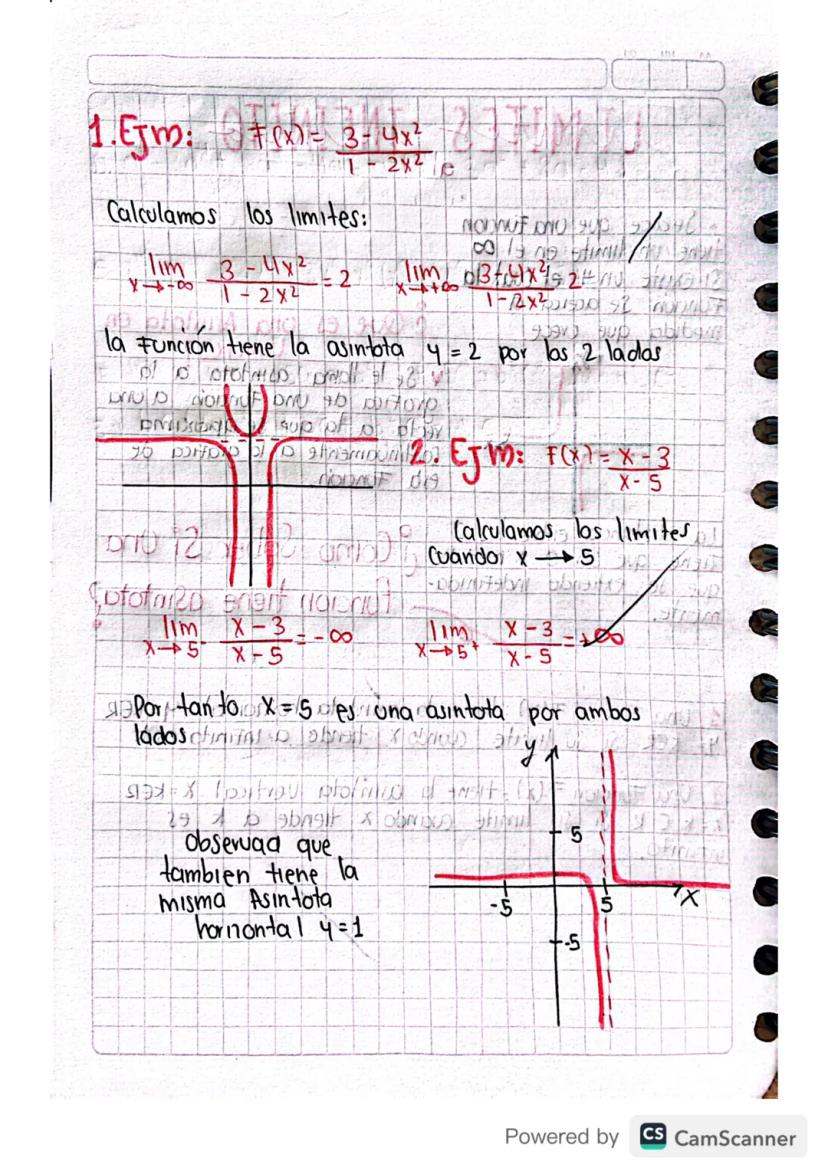 1. EJm: F(x) = 3 - 4x² / 1 - 2x²
Calculamos los limites:
lim x→-∞ 3 - 4x² / 1 - 2x² = 2 lim x→+∞ 3-4x² / 1-2x² = 2
la Función tiene la asintota y = 2 por los 2 lados
2. EJm: F(x) = x - 3 / x - 5
Calculamos los limites
Cuando x → 5
lim x→5⁻ x - 3 / x - 5 = -∞ lim x→5⁺ x - 3 / x - 5 = +∞
Por tanto x = 5 es una asintota por ambos
lados
y
5
-5
5
x
-5
Observaa que
tambien tiene la
misma Asintota
horizontal y = 1
Powered by CS CamScanner